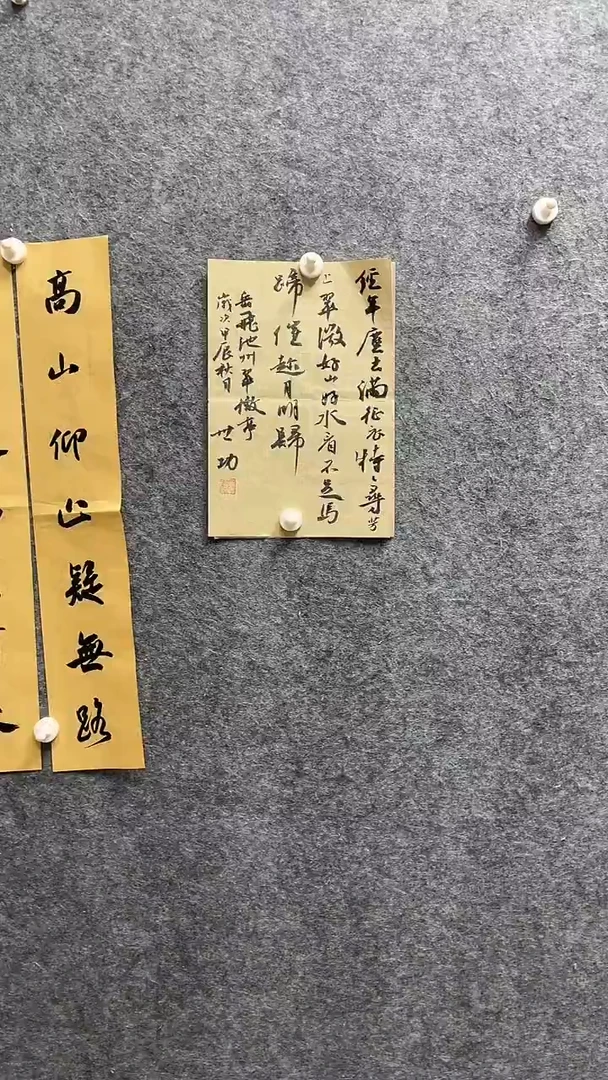 經年塵土滿征衣特特尋芳
上翠微好山好水看不足馬
蹄催趁月明歸
岳飛池州翠微亭
歲次甲辰秋月
世功
高山仰止疑無路